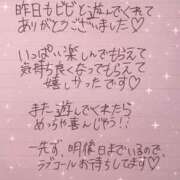 昨日もビビと遊んでくれて
ありがとうございました♡
いっぱい楽しんでもらえて
気持ち良くなってもらえて
嬉しかったです♡
また遊んでくれたら
めっちゃ喜んじゃう!!
一先ず、明後日までいるので
ラブコールお待ちしてます♡